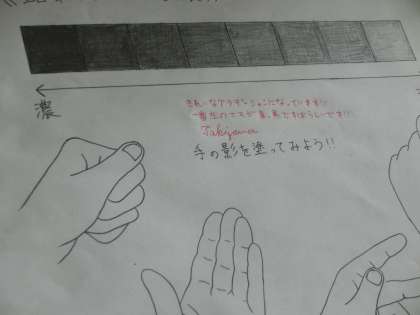 濃
きれいなグラデーションになっています!!
一番左のマスが真っ黒ですばらしいです!!
Takizawa
手の影を塗ってみよう!!